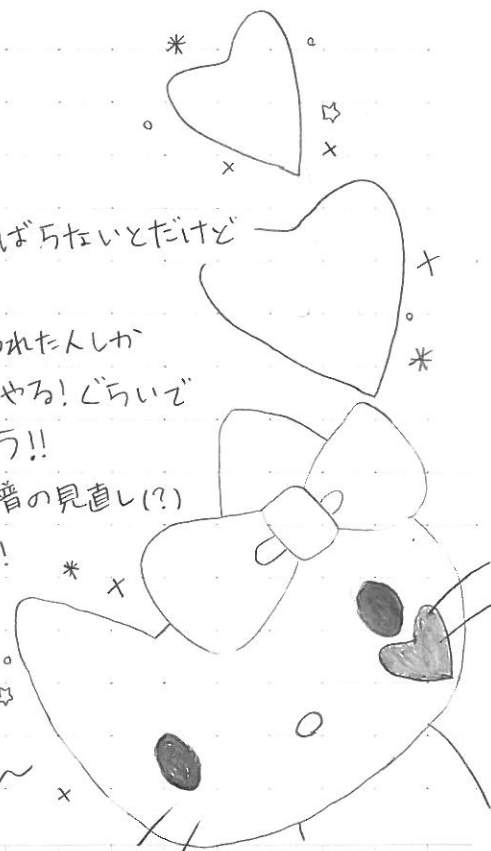 ばらないとだけど
われた人しか
やる!ぐらいで
う!!
譜の見直し(?)
!